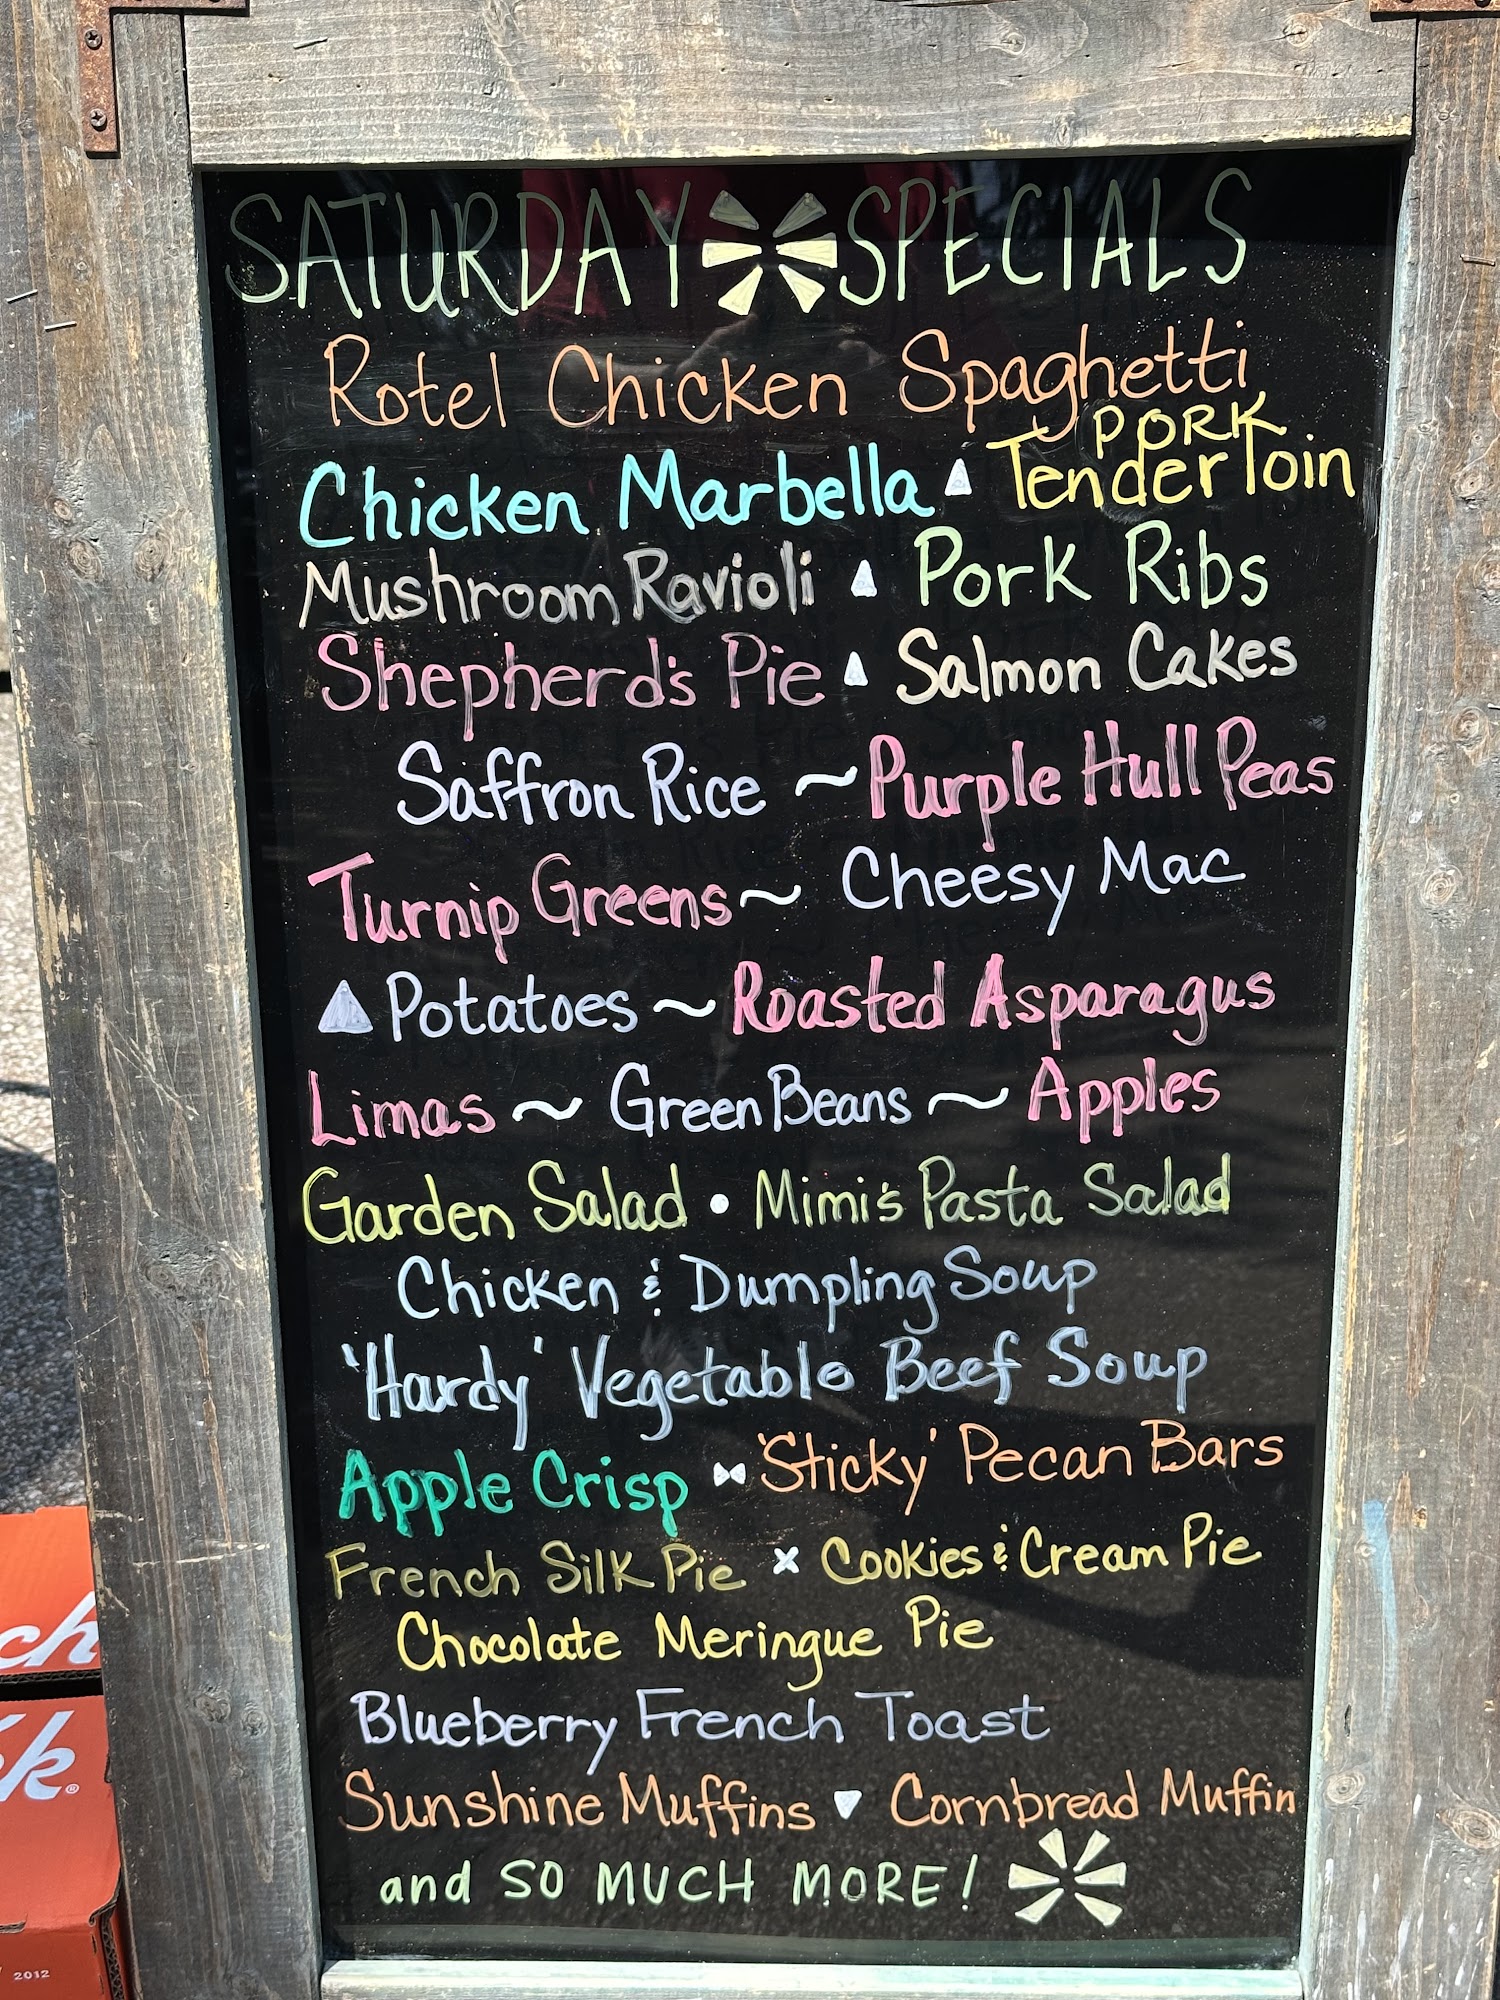 SATURDAY SPECIALS
Rotel Chicken Spaghetti
Chicken Marbella PORK Tenderloin
Mushroom Ravioli Pork Ribs
Shepherd's Pie Salmon Cakes
Saffron Rice ~ Purple Hull Peas
Turnip Greens ~ Cheesy Mac
Potatoes ~ Roasted Asparagus
Limas ~ Green Beans ~ Apples
Garden Salad • Mimi's Pasta Salad
Chicken & Dumpling Soup
'Hardy' Vegetable Beef Soup
Apple Crisp 'Sticky' Pecan Bars
French Silk Pie x Cookies & Cream Pie
Chocolate Meringue Pie
Blueberry French Toast
Sunshine Muffins Cornbread Muffin
and SO MUCH MORE!
ch
k®
2012